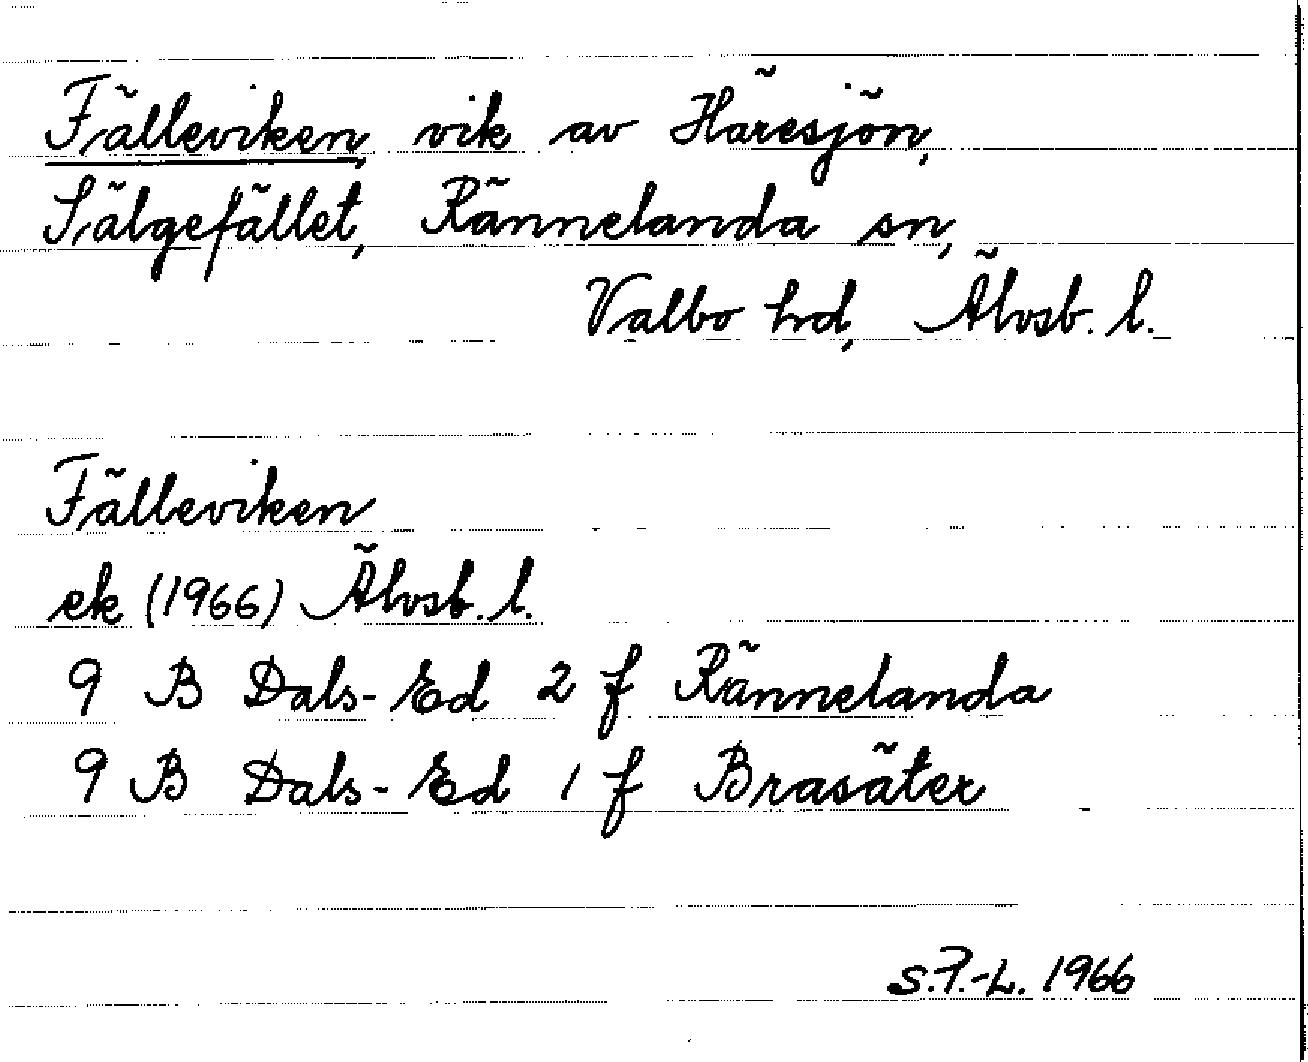 Fälleviken, vik av Häresjön,
Sälgefället, Rännelanda sn,
Valbo hd, Älvsb. l.
Fälleviken
ek (1966) Älvsb. l.
9 B Dals-Ed 2 f Rännelanda
9 B Dals-Ed 1 f Brasäter
S.P.-L. 1966